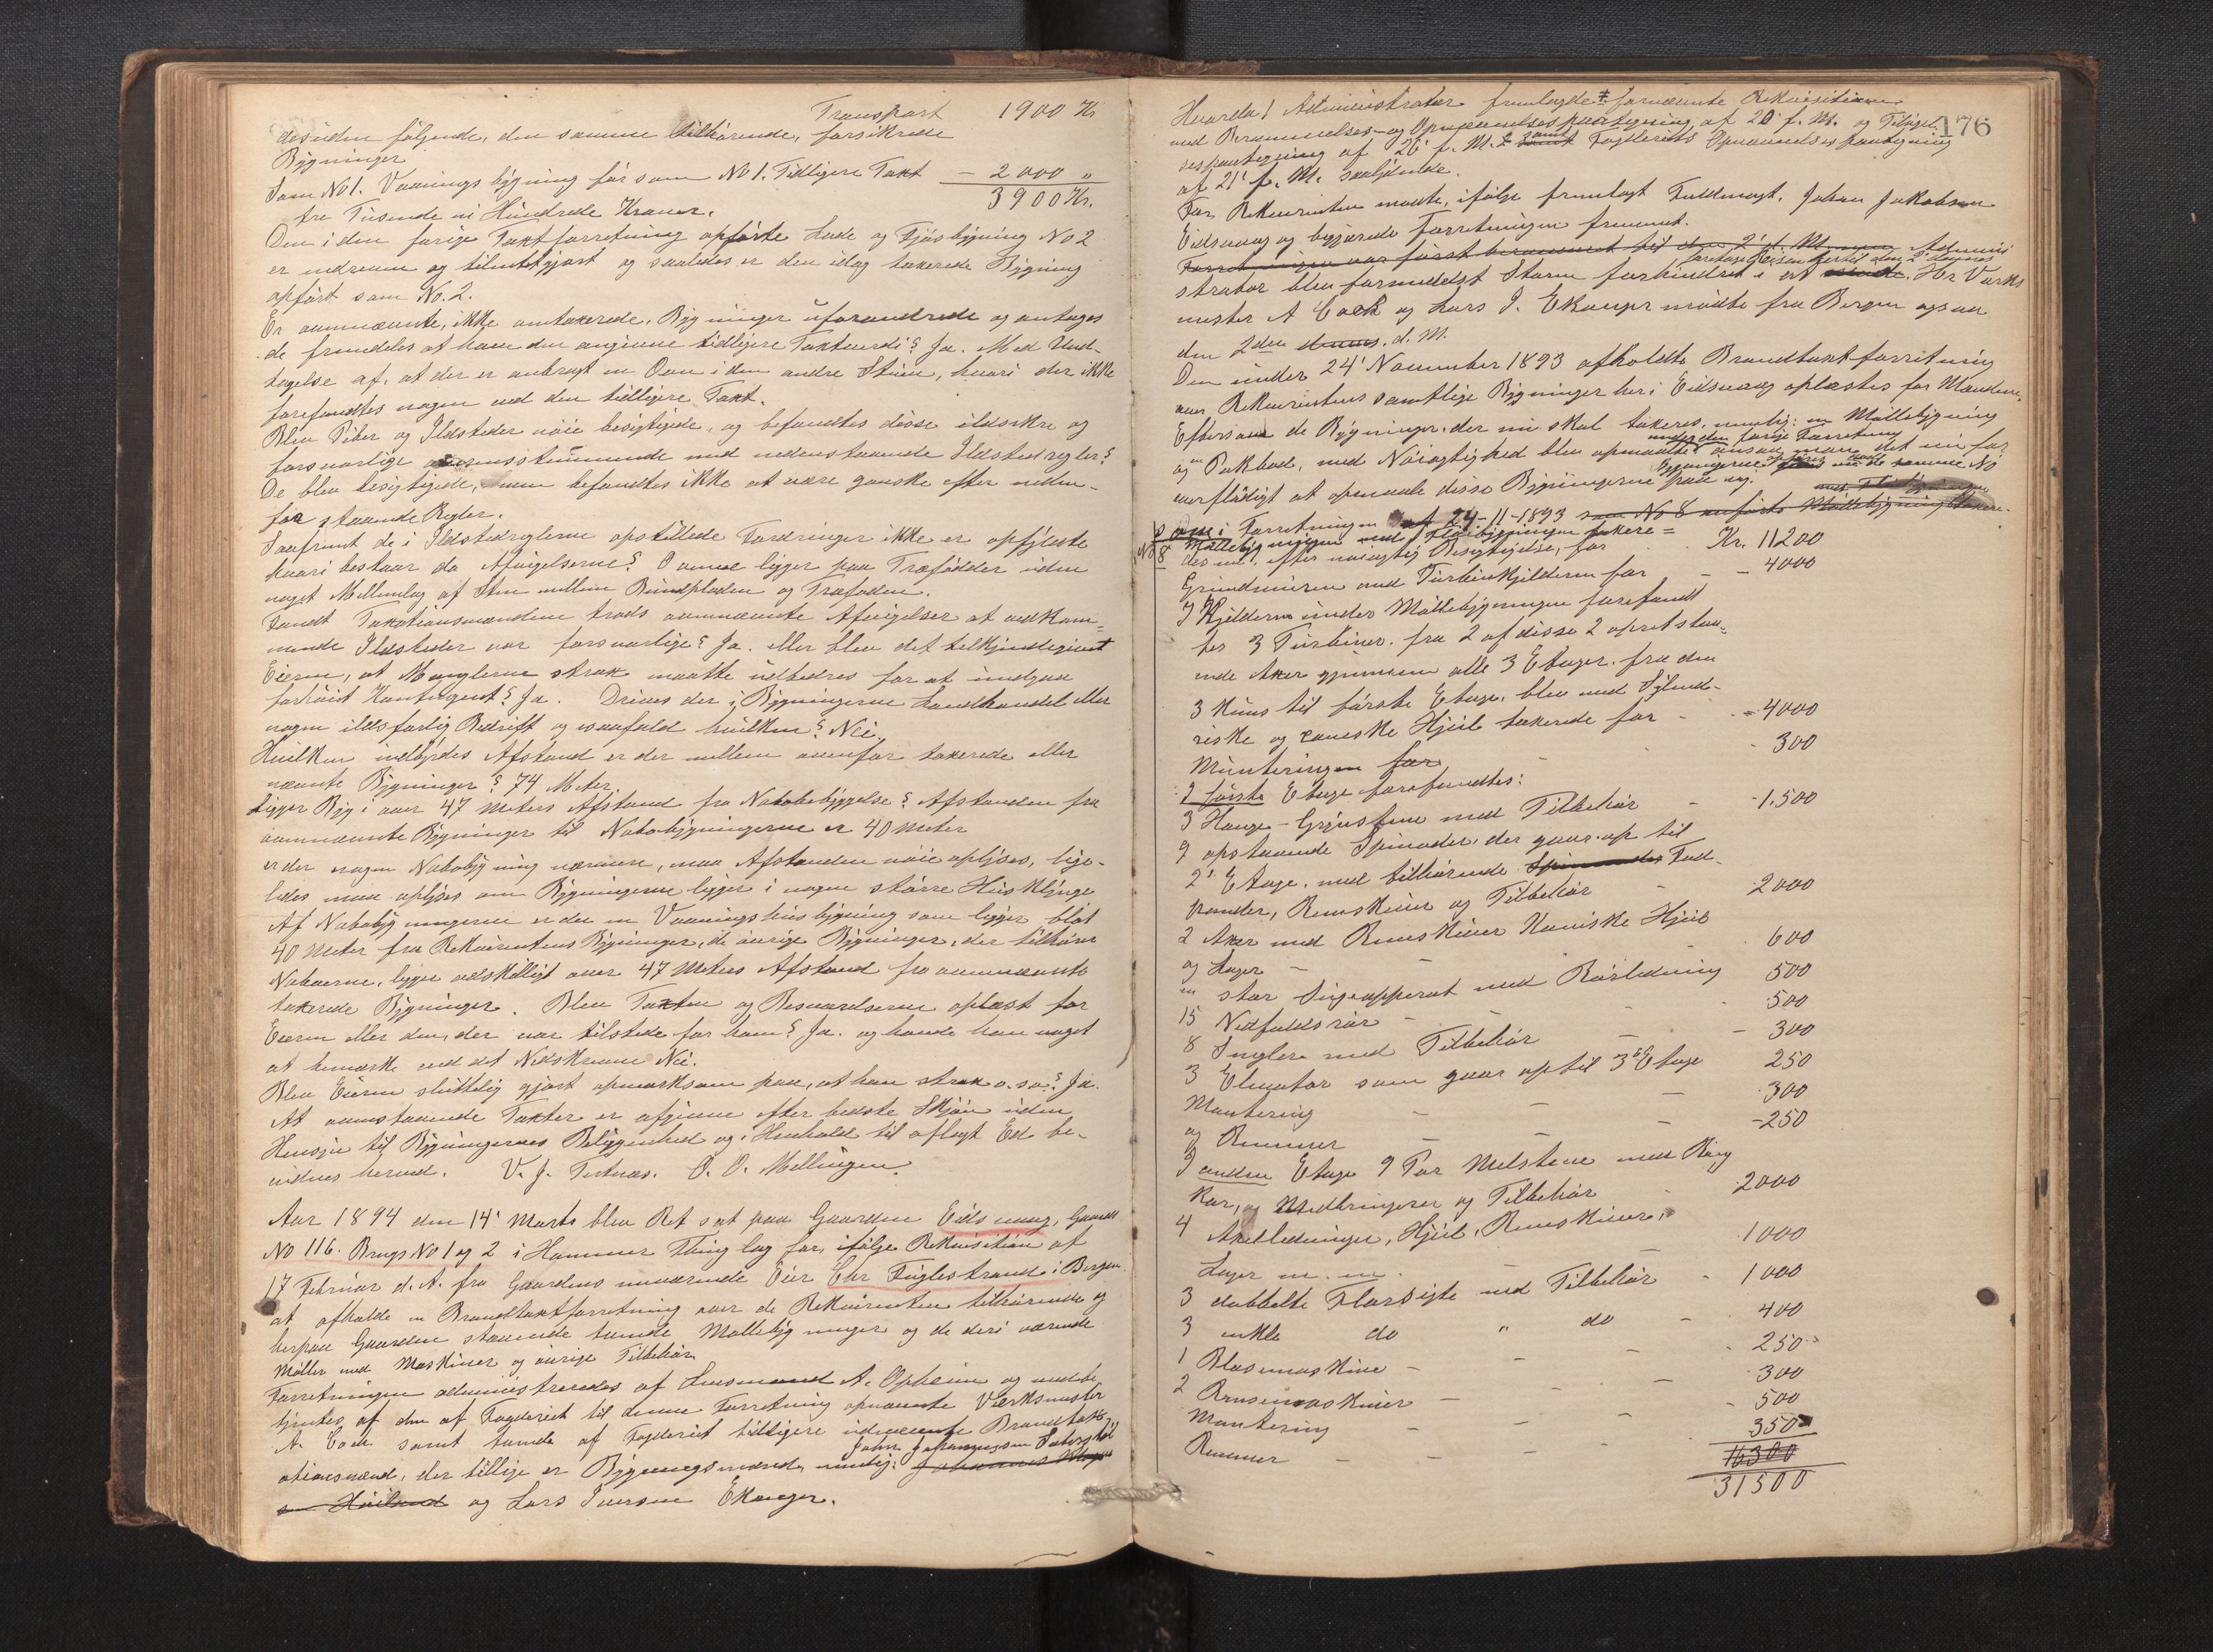 Transport 1900 Kr
desuden følgende, den samme tilhørende, forsikrede
Bygninger
Som No 1. Vaanings bygning før som No 1. Tidligere Taxt — 2000 "
3900 Kr.
tre Tusende ni Hundrede Kroner.
Den i den forrige Taxtforretning opførte Lade og Fjøsbygning No 2
er nedreven og tilintetgjort og saaledes er den idag taxerede Bygning
opført som No. 2.
Er ovennævnte, ikke omtaxerede, Bygninger uforandrede og antages
de fremdeles at have den angivne tidligere Taxtværdi? Ja. Med Und-
tagelse af, at der er anbragt en Ovn i den andre Stue, hvori der ikke
forefandtes nogen ved den tidligere Taxt.
Blev Piber og Ildsteder nøie besigtigede, og befandtes disse ildsikre og
forsvarlige overensstemmende med nedenstaaende Ildstedregler?
De blev besigtigede, men befandtes ikke at være ganske efter neden-
for staaende Regler.
Saafremt de i Ildstedreglerne opstillede Fordringer ikke er opfyldte
hvori bestaar da Afvigelserne? Ovnene ligger paa Træfødder uden
noget Mellemlag af Sten mellem Bundpladen og Træfoden.
Fandt Taxationsmændene trods ovennævnte Afvigelser at vedkom-
mende Ildsteder var forsvarlige? Ja. eller blev det tilkjendegivet
Eieren, at Manglerne strax maatte udbedres for at undgaa
forhøiet Kontingent? Ja. Drives der i Bygningerne Landhandel eller
nogen ildsfarlig Bedrift og isaafald hvilken? Nei.
Hvilken indbyrdes Afstand er der mellem ovenfor taxerede eller
nævnte Bygninger? 74 Meter.
Ligger Byg i over 47 Meters Afstand fra Nabobebyggelse? Afstanden fra
ovennævnte Bygninger til Nabobygningerne er 40 Meter
er der nogen Nabobygning nærmere, maa Afstanden nøie oplyses, lige-
ledes maa oplyses om Bygningerne ligger i nogen større Husklynge
Af Nabobygningerne er der en Vaaningshusbygning som ligger blot
40 Meter fra Rekvirentens Bygninger, de øvrige Bygninger, der tilhører
Naboerne, ligger adskilligt over 47 Meters Afstand fra ovennævnte
taxerede Bygninger. Blev Taxten og Besvarelserne oplæst for
Eieren eller den, der var tilstede for ham? Ja. og havde han noget
at bemærke ved det Nedskrevne Nei.
Blev Eieren sluttelig gjort opmærksom paa, at han strax o. s. v.? Ja.
At ovenstaaende Taxter er afgivne efter bedste Skjøn uden
Hensyn til Bygningernes Beliggenhed og i Henhold til aflagt Ed be-
vidnes herved. V. J. Tertnæs. O. O. Mellingen.
Aar 1894 den 14' Marts blev Ret sat paa Gaarden Eidsvaag, Gaards
No 116. Brugs No 1 og 2 i Hammer Thinglag for, ifølge Rekvisition af
17 Februar d. A. fra Gaardens nuværende Eier Chr Fuglestrand i Bergen
at afholde en Brandtaxtforretning over de Rekvirenten tilhørende og
herpaa Gaarden staaende tvende Møllebygninger og de deri værende
Møller med Maskiner og øvrige Tilbehør.
Forretningen administreredes af Lensmand A. Opheim og med be
tjentes af den af Fogderiet til denne Forretning opnævnte Værksmester
A. Cock samt tvende af Fogderiet tidligere udnævnte Brandtax-
ationsmænd, der tillige er Bygningsmænd, nemlig: Johannes
John Johannessen
Høiland og Lars Iversen Ekanger.
176
Hvorda! Administrator fremlagde fornævnte Rekvisition
med Berammelses- og Opnævnelsespaategning af 20' f. M. og Tilsigel-
sespaategning af 26' f. M. samt Fogderiets Opnævnelsespaategning
af 21' f. M. saalydende.
For Rekvirenten mødte, ifølge fremlagt Fuldmagt, Johan Jakobsen
Eidsvaag og begjærede Forretningen fremmet.
Forretningen var først berammet til den 2' d. M. men Admini
strator blev formedelst Storm forhindret i at Hr Værks
mester A Cock og Lars I. Ekanger mødte fra Bergen ogsaa
den 2den d. M.
Den under 24' November 1893 afholdte Brandtaxtforretning
over Rekvirentens samtlige Bygninger her i Eidsvaag oplæstes for Mændene.
Eftersom de Bygninger, der nu skal taxeres, nemlig: en Møllebygning
og en Pakbod, med Nøiagtighed blev opmaalte under den forrige Forretning ansaa man det nu for
overflødigt at opmaale disse Bygningerne paa ny. Bygningerne opføres nu de samme No
som i Forretningen af 24-11-1893 som No 8 anførte Møllebygning
No 8 Møllebygningen med Fløibygningen taxere-
des nu, efter nøiagtig Besigtigelse, for Kr. 11200
Grundmuren med Turbinkjelderen for — 4000
I Kjelderen under Møllebygningen forefandt
tes 3 Turbiner. fra 2 af disse 2 opretstaa-
ende Axer gjennem alle 3 Etager. fra den
3 kuns til første Etage, blev med Sylind-
riske og coniske Hjul taxerede for — 4000
Munteringen for 300
I første Etage forefandtes:
3 Hænge-Grynstene med Tilbehør — 1.500
9 opstaaende Spinader, der gaar op til
2' Etage, med tilhørende Spinander Fad-
pander, Remskiver og Tilbehør 2000
2 Axer med Remskiver Koniske Hjul
og Lager 600
en stor Sugeapperat med Rørledning 500
15 Nedfaldsrør 500
8 Sneglere med Tilbehør — 300
3 Elevator som gaar op til 3de Etage 250
Muntering 300
og Remmer — 250
I anden Etage 9 Par Melstene med Ring
Kar, og Medbringerer og Tilbehør 2000
4 Axelledninger, Hjul, Remskiver,
Lager m. m. 1000
3 dobbelte Florsigte med Tilbehør 1000
3 enkle do " do 400
1 Blæsemaskine 250
2 Rensemaskiner 300
Muntering 500
Remmer 350
16300
31500